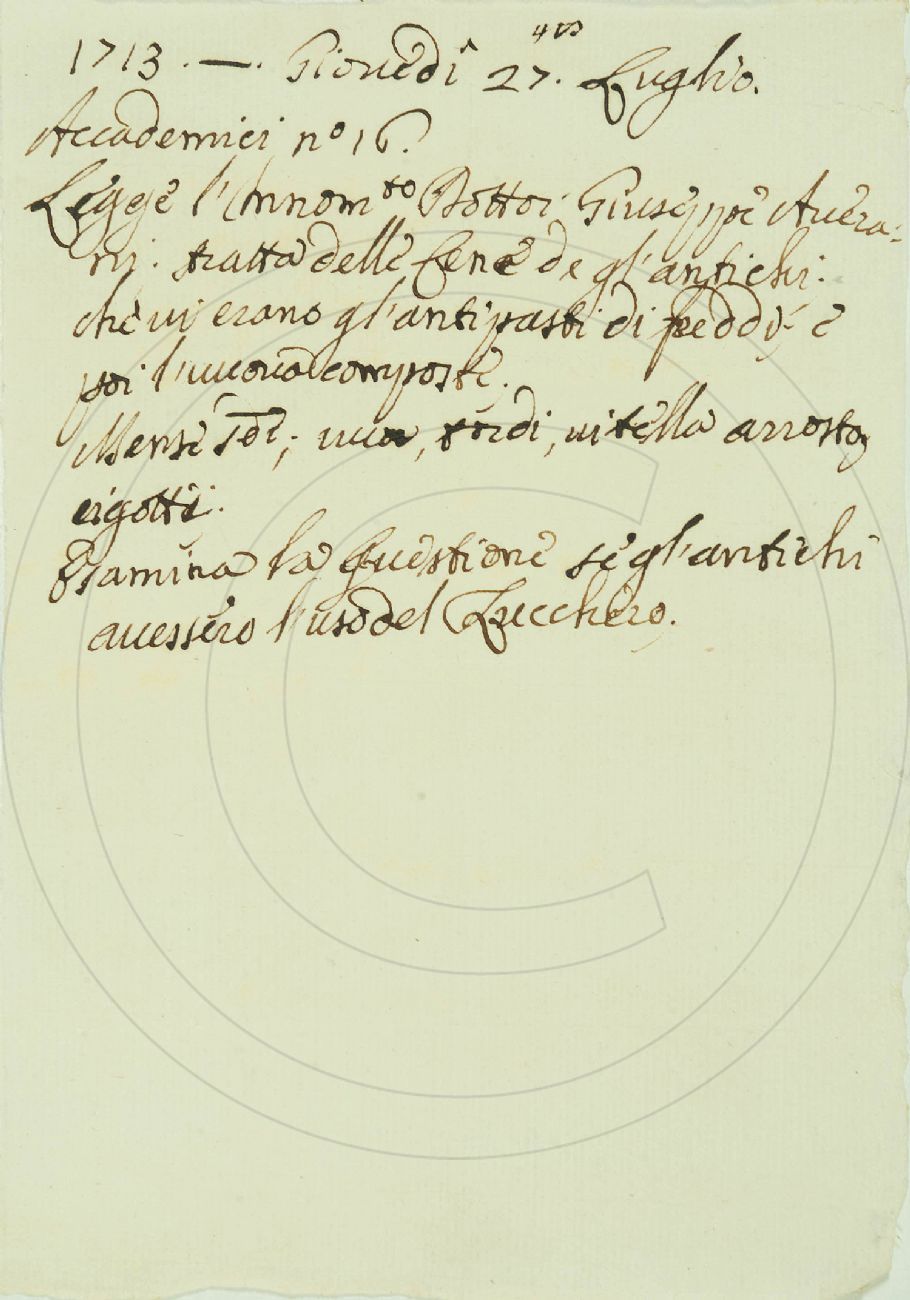 1713. —. Giouedì 27. Luglio.
Accademici nº 16.
Legge l'Innom.to Dottor Giuseppe Auera-
nj. tratta delle Cene de gl'antichi.
che ui erano gl'antipasti di freddi, e
poi l'uuoua composte.
Mense 2de; uua, tordi, uitella arrosto,
e
Esamina la Questione se gl'antichi
auessero l'uso del Zucchero.